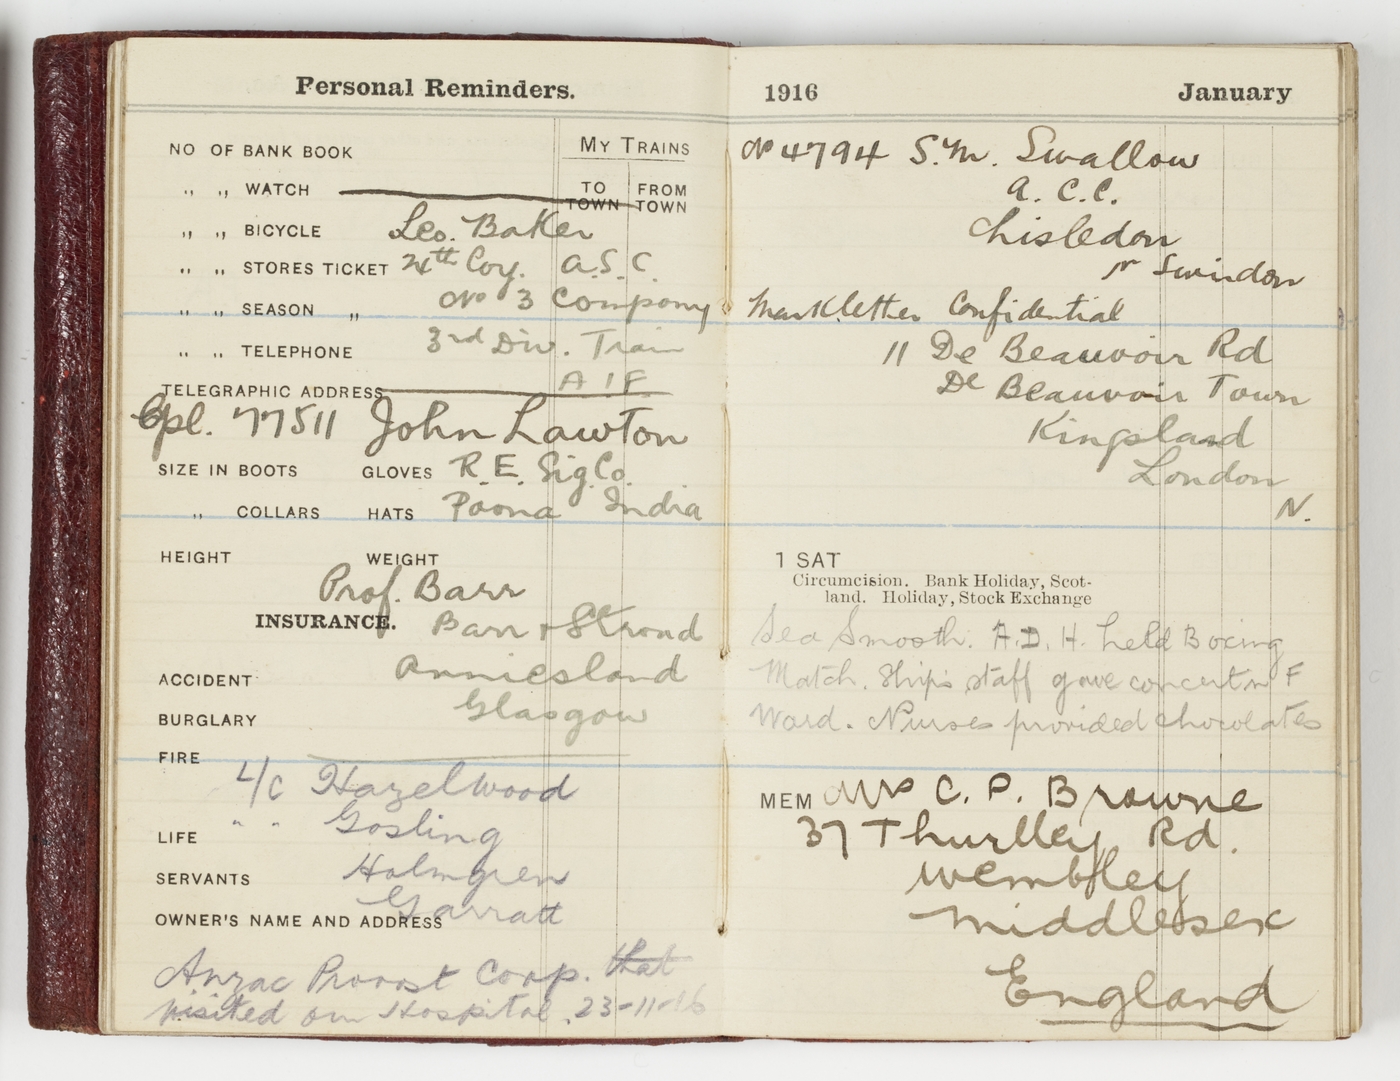 Personal Reminders.
NO OF BANK BOOK
MY TRAINS
" " WATCH
TO TOWN
FROM TOWN
" " BICYCLE Leo. Baker
" " STORES TICKET 24th Coy. A.S.C.
" " SEASON " No 3 Company
" " TELEPHONE 3rd Div. Train
TELEGRAPHIC ADDRESS A I F
Cpl. 77511 John Lawton
SIZE IN BOOTS GLOVES R.E. Sig. Co.
" COLLARS HATS Poona India
HEIGHT WEIGHT
Prof. Barr
INSURANCE. Barr & Stroud
ACCIDENT Anniesland
BURGLARY Glasgow
FIRE
L/C Hazelwood
LIFE " " Gosling
SERVANTS Holmgren
OWNER'S NAME AND ADDRESS Garratt
Anzac Provost Corp. that
visited our Hospital. 23-11-16
1916 January
No 4794 S.M. Swallow
A.C.C.
Chisledon
nr Swindon
Mark letter Confidential
11 De Beauvoir Rd
De Beauvoir Town
Kingsland
London
N.
1 SAT
Circumcision. Bank Holiday, Scot-
land. Holiday, Stock Exchange
Sea Smooth. A.D.H. held Boxing
Match. Ships staff gave concert in F
Ward. Nurses provided chocolates
MEM Mrs C. P. Browne
37 Thurlley Rd.
Wembley
Middlesex
England